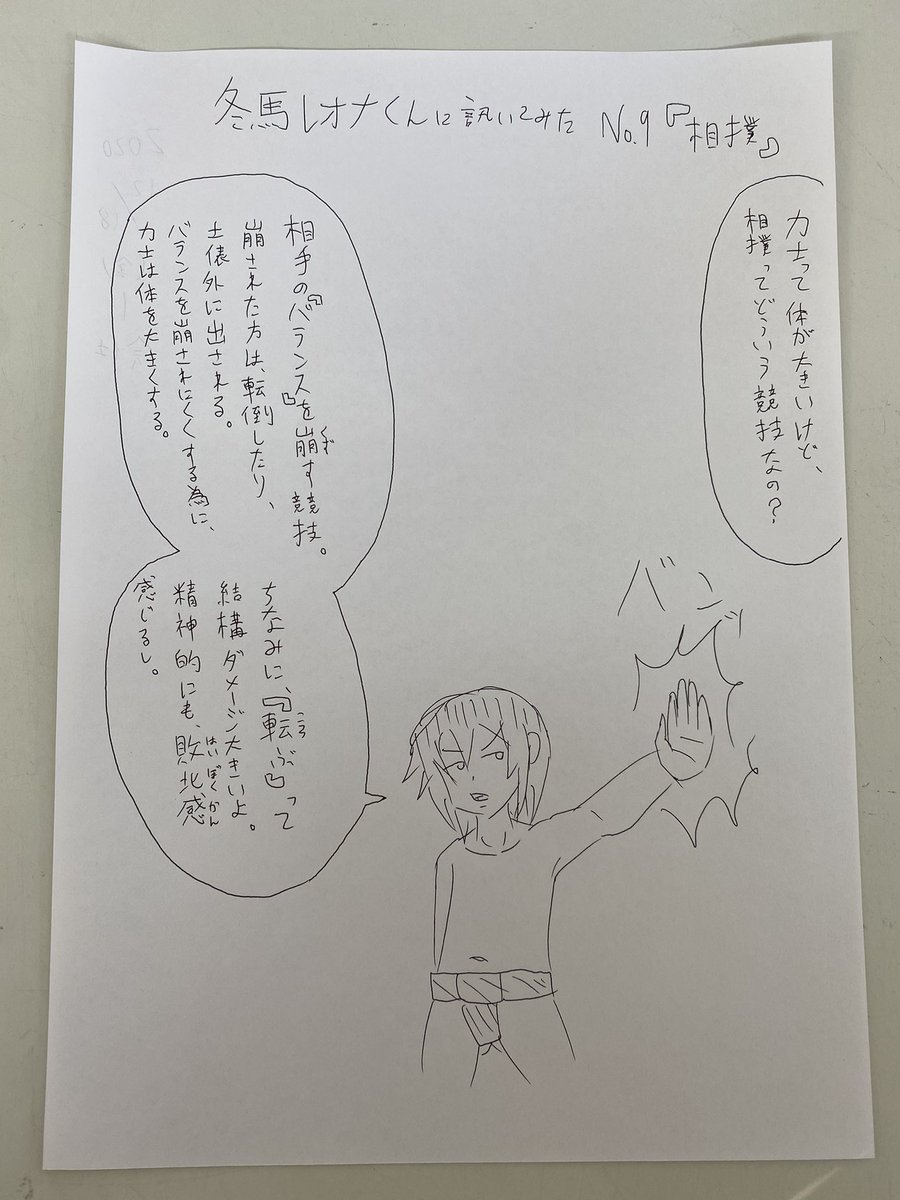 冬馬レオナくんに訊いてみた No.9『相撲』
力士って体が大きいけど、
相撲ってどういう競技なの?
相手の『バランス』を崩す競技。
くず
崩された方は、転倒したり、
土俵外に出される。
バランスを崩されにくくする為に、
力士は体を大きくする。
ちなみに、『転ぶ』って
ころ
結構ダメージ大きいよ。
精神的にも、敗北感
はいぼくかん
感じるし。
バンッ
2020